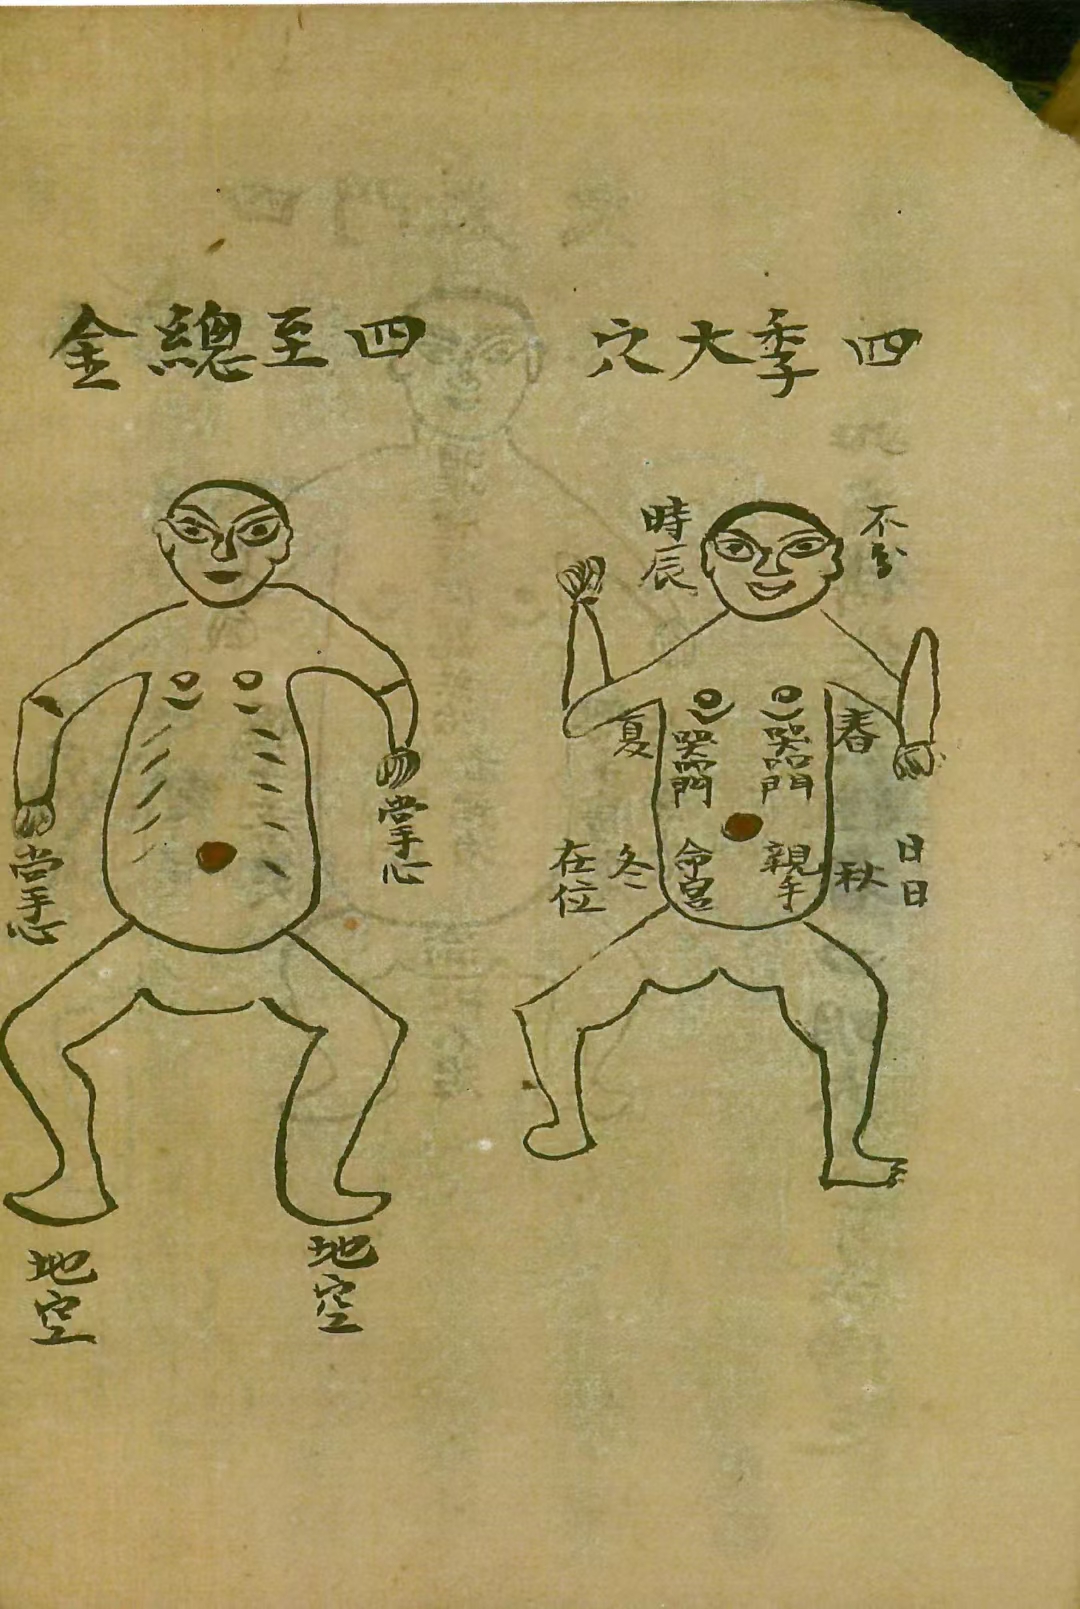 四季大穴
不分
時辰
春
夏
哭門
哭門
日日
秋
親手
命宮
冬
在位
四至總全
掌心
掌心
地空
地空